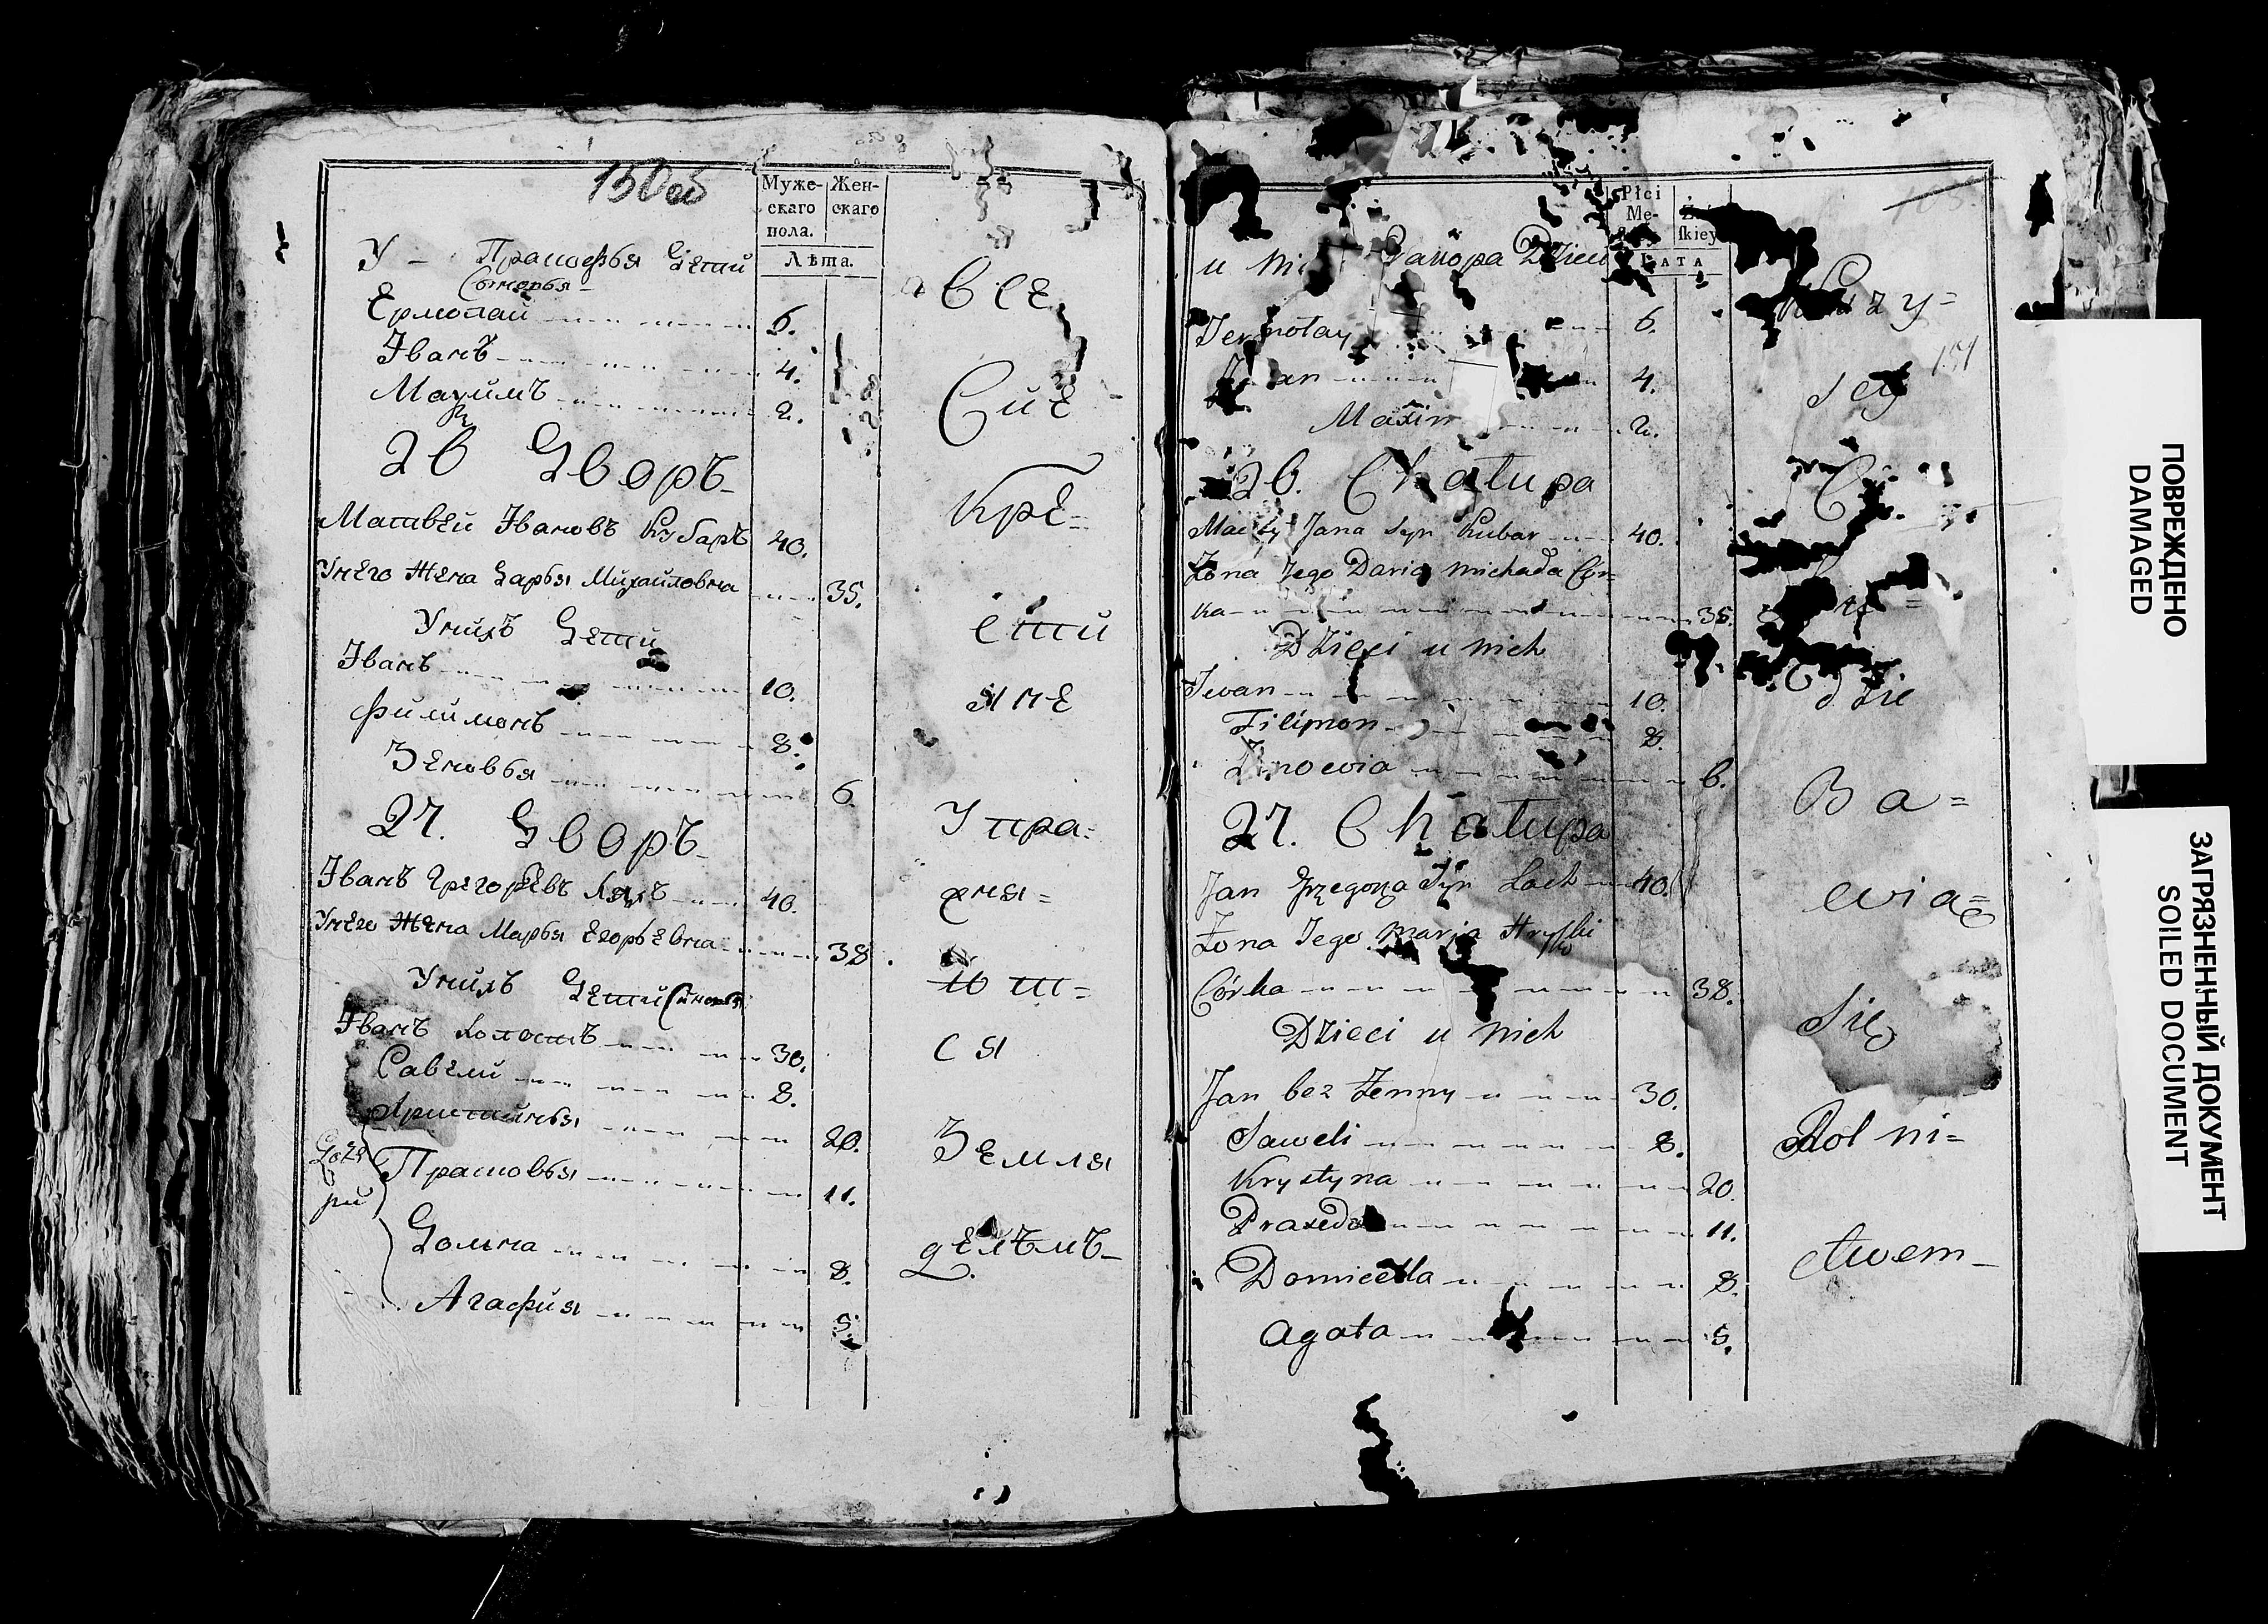 150 об
Муже-
скаго
пола.
Жен-
скаго
Лѣта.
У Праковья Дѣти
Сыновья
Ермолай 6.
Иванъ 4.
Махимъ 2.
26 Дворъ
Матвей Ивановъ Кубаръ 40.
Унего Жена Дарья Михайловна 35.
Унихъ Дети
Иванъ 10.
Филимонъ 8.
Зеновья 6.
27. Дворъ
Иванъ Григорьевъ Ляхъ 40.
Унего Жена Марья Егорьевна 38.
Унихъ Дети Сыновья
Иванъ Холостъ 30.
Савели 8.
Христинья 20.
Доче
ри
Прасковья 11.
Домна 8.
Агафия 5.
а все
Сие
кре=
стьи
яне
Упра=
жня=
ют=
ся
Земля
делъмъ
Płci
Mę-
skiey
LATA
u Dzieci
Jermołay 6.
Iwan 4.
Maxim 2.
26. Chałupa
Maciey Jana Syn Kubar 40.
Żona Jego Daria Michała Cór=
ka 35.
Dzieci u nich
Iwan 10.
Filimon 8.
Zinowia 6.
27. Chałupa
Jan Grzegorza Syn Lach 40.
Żona Jego Marja Hryśki
Córka 38.
Dzieci u nich
Jan bez Żenny 30.
Saweli 8.
Krystyna 20.
Praxeda 11.
Domicella 8.
Agata 5.
151
scy
Ci
dzie
Ba=
wia=
Się
Rol ni=
ctwem
ПОВРЕЖДЕНО
DAMAGED
ЗАГРЯЗНЕННЫЙ ДОКУМЕНТ
SOILED DOCUMENT